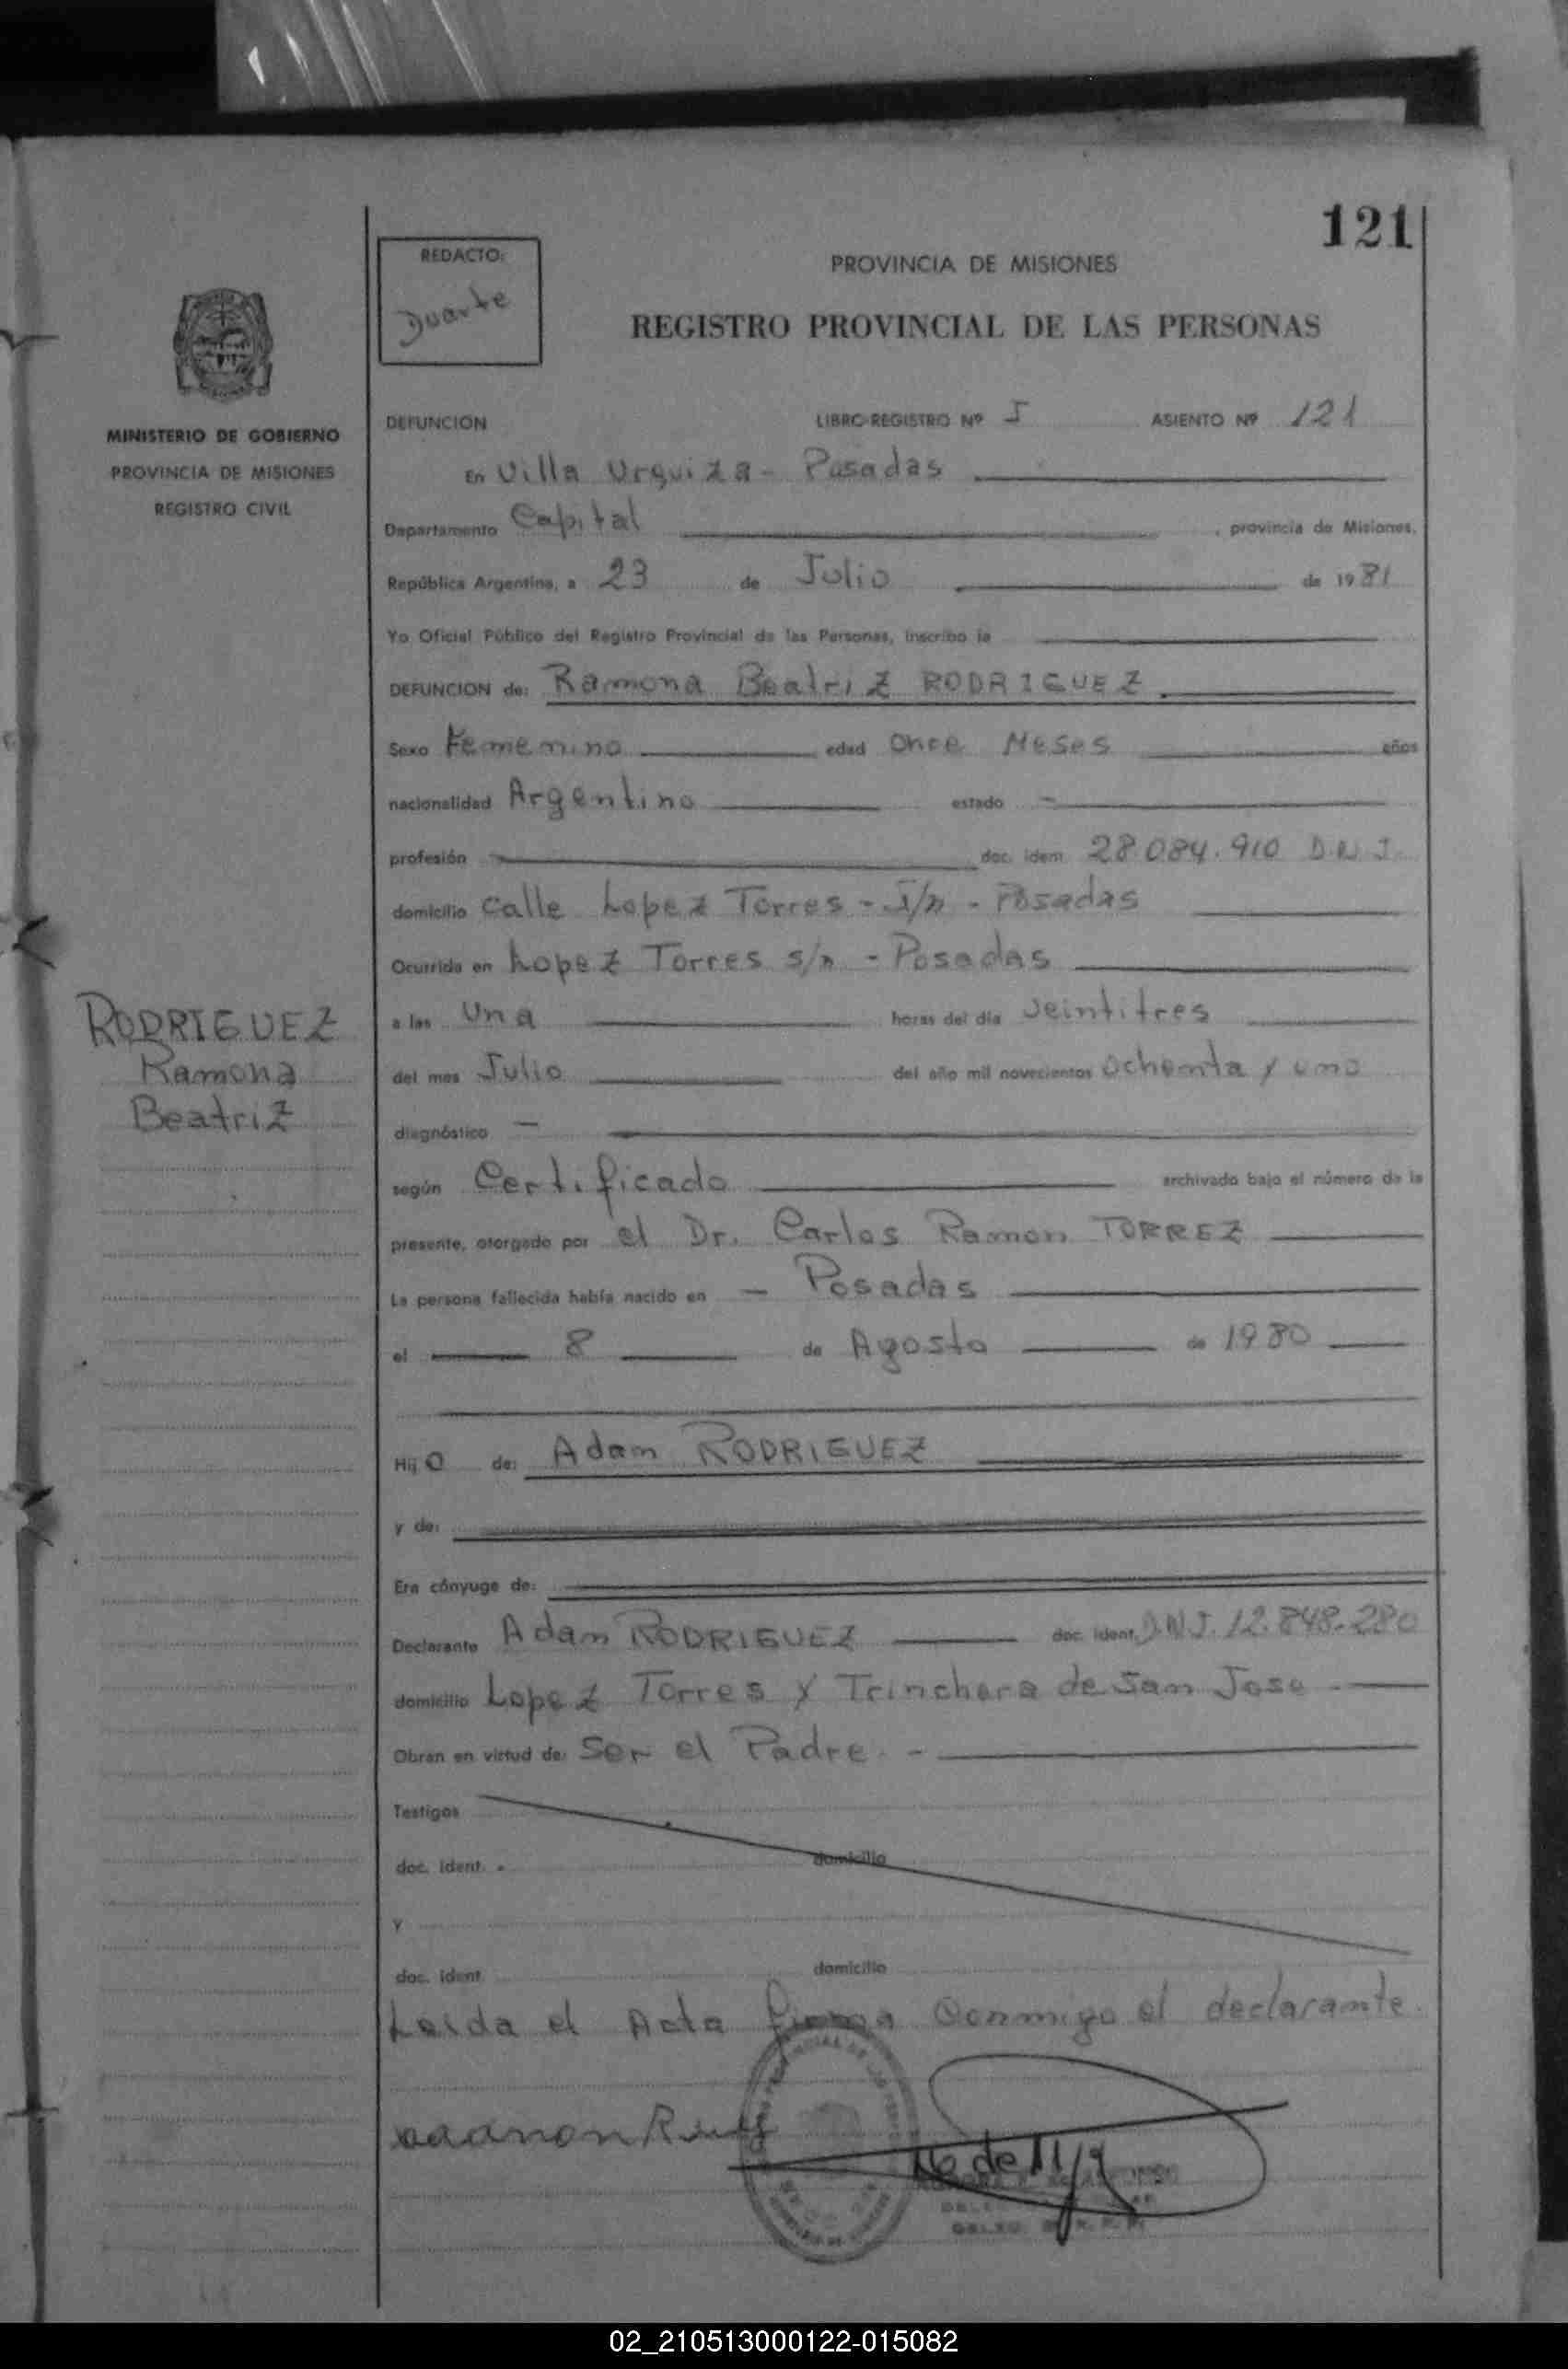 121
REDACTO:
Duarte
PROVINCIA DE MISIONES
REGISTRO PROVINCIAL DE LAS PERSONAS
MINISTERIO DE GOBIERNO
PROVINCIA DE MISIONES
REGISTRO CIVIL
DEFUNCION LIBRO-REGISTRO Nº I ASIENTO Nº 121
En Villa Urquiza - Posadas
Departamento Capital , provincia de Misiones,
República Argentina, a 23 de Julio de 1981
Yo Oficial Público del Registro Provincial de las Personas, inscribo la
DEFUNCION de: Ramona Beatriz RODRIGUEZ
Sexo Femenino edad Once Meses años
nacionalidad Argentina estado -
profesión doc. idem 28.084.910 D.N.I.
domicilio Calle Lopez Torres - S/n - Posadas
Ocurrida en Lopez Torres s/n - Posadas
a las Una horas del día Veintitres
del mes Julio del año mil novecientos Ochenta y uno
diagnóstico -
según Certificado archivado bajo el número de la
presente, otorgado por el Dr. Carlos Ramon TORREZ
La persona fallecida había nacido en - Posadas
el 8 de Agosto de 1980
RODRIGUEZ
Ramona
Beatriz
Hij o de: Adam RODRIGUEZ
y de:
Era cónyuge de:
Declarante Adam RODRIGUEZ doc. ident. D.N.I. 12.848.280
domicilio Lopez Torres y Trinchera de San Jose -
Obran en virtud de: Ser el Padre. -
Testigos
doc. ident. domicilio
y
doc. ident. domicilio
Leida el Acta firma Conmigo el declarante.
02_210513000122-015082